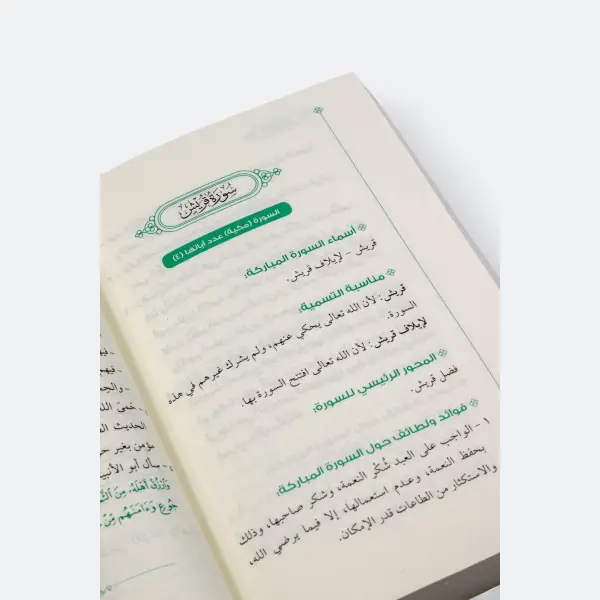 سورة قريش
السورة (مكية) عدد آياتها (٤)
أسماء السورة المباركة:
قريش - لإيلاف قريش.
مناسبة التسمية:
قريش: لأن الله تعالى يحكي عنهم، ولم يشرك غيرهم في هذه
السورة.
لإيلاف قريش: لأن الله تعالى افتتح السورة بها.
المحور الرئيسي للسورة:
فضل قريش.
فوائد ولطائف حول السورة المباركة:
١ - الواجب على العبد شُكْر النعمة، وشكر صاحبها، وذلك
بحفظ النعمة، وعدم استعمالها، إلا فيما يرضي الله،
والاستكثار من الطاعات قدر الإمكان.
- فيهم
- والجم
الحديث ال
مؤمن بغير
- سأل أبو الأنب
وَارْزُقْ أَهْلَهُ مِنَ
جُوعٍ وَءَامَنَهُم مِّنْ